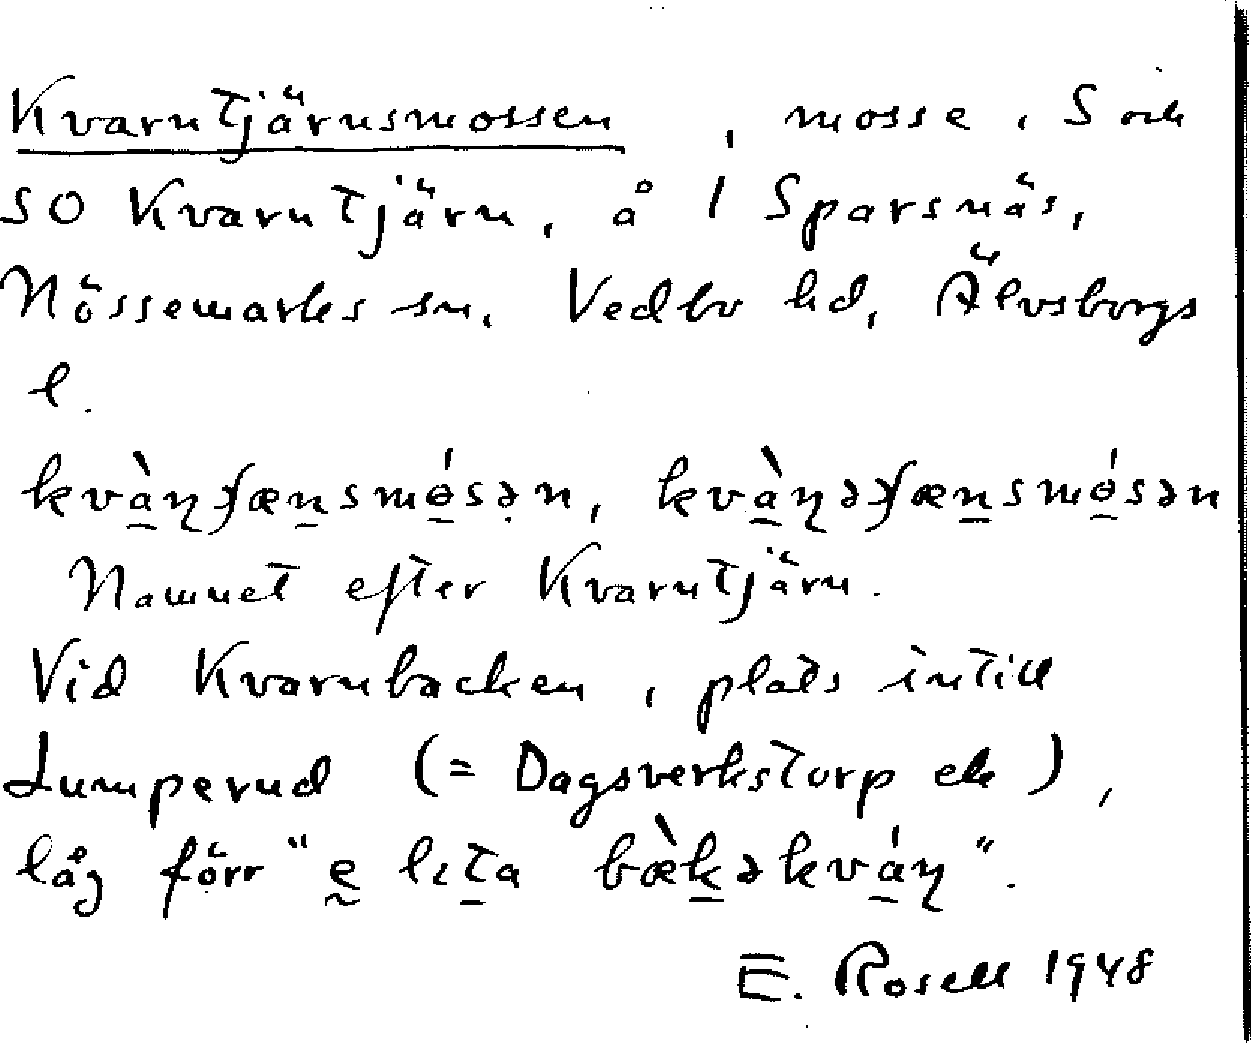 Kvarntjärnsmossen, mosse, S och
SO Kvarntjärn, å 1 Sparsnäs,
Nössemarks sn, Vedbo hd, Älvsborgs
l.
Namnet efter Kvarntjärn.
Vid Kvarnbacken, plats intill
Lumperud (= Dagsverkstorp ek),
låg förr "ḛ lɩt̲a bæ̀k̲əkvá̲ɳ".
E. Rosell 1948